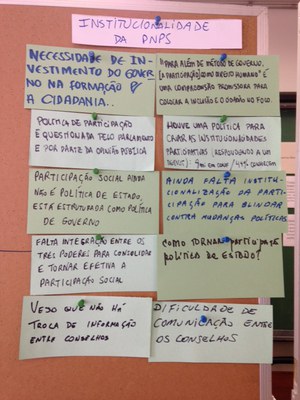 INSTITUCIONALIDADE
DA PNPS
NECESSIDADE DE IN-
VESTIMENTO DO GOVER
NO NA FORMAÇÃO P/
A CIDADANIA..
"PARA ALÉM DE MÉTODO DE GOVERNO,
(A PARTICIPAÇÃO) COMO DIREITO HUMANO" É
UMA COMPREENSÃO PROMISSORA PARA
COLOCAR A INCLUSÃO E O DO NO FOCO.
POLÍTICA DE PARTICIPAÇÃO
É QUESTIONADA PELO PARLAMENTO
E POR PARTE DA OPINIÃO PÚBLICA
HOUVE UMA POLÍTICA PARA
CRIAR AS INSTITUCIONALIDADES
PARTICIPATIVAS, RESPONDENDO A UM
PARTICIPAÇÃO SOCIAL AINDA
NÃO É POLÍTICA DE ESTADO,
ESTÁ ESTRUTURADA COMO POLÍTICA
DE GOVERNO
AINDA FALTA INSTITU-
CIONALIZAÇÃO DA PARTI-
CIPAÇÃO PARA BLINDAR
CONTRA MUDANÇAS POLÍTICAS
FALTA INTEGRAÇÃO ENTRE OS
TRÊS PODERES PARA CONSOLIDAR
E TORNAR EFETIVA A
PARTICIPAÇÃO SOCIAL
COMO TORNAR participação
política de ESTADO?
VEJO QUE NÃO HÁ
TROCA DE INFORMAÇÃO
ENTRE CONSELHOS
DIFICULDADE DE
COMUNICAÇÃO ENTRE
OS CONSELHOS